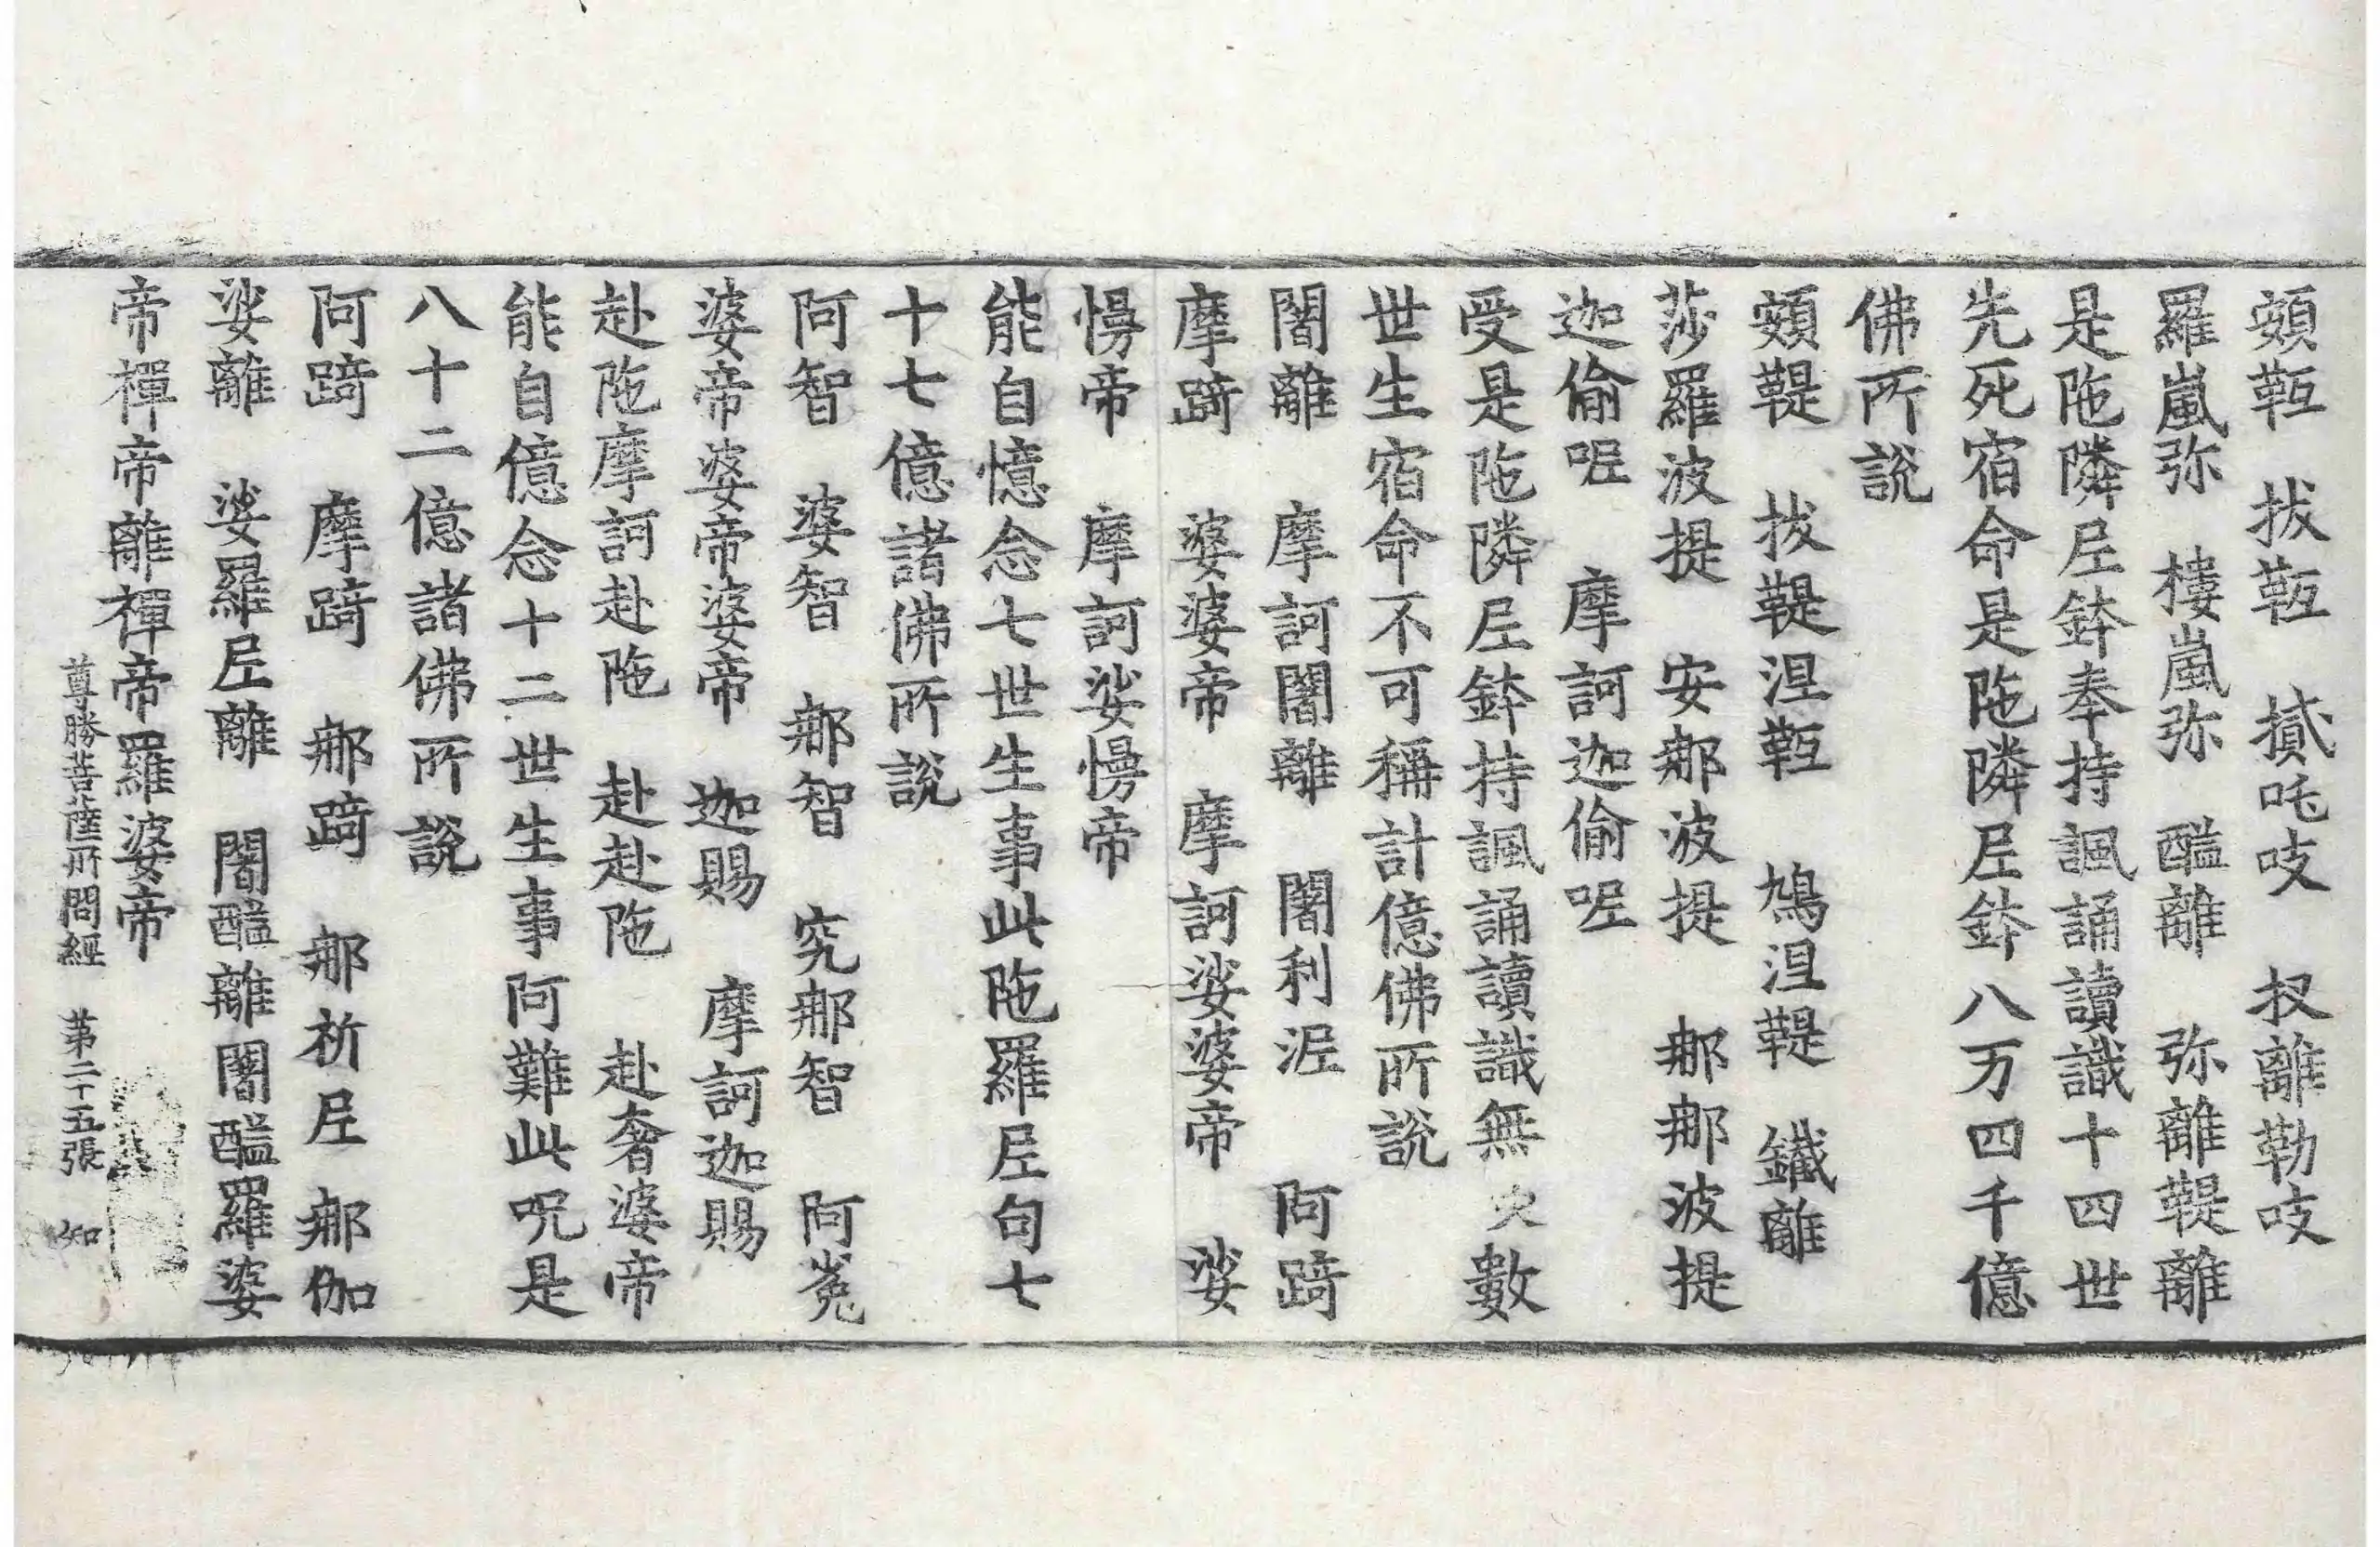 頞𩉜　拔𩉜　㩲吒吱　扠離勒吱
羅嵐弥　樓嵐弥　醯離　弥離鞮離
是陁隣𡰱鉢奉持諷誦讀識十四世
先死宿命是陁隣𡰱鉢八万四千億
佛所說
頞鞮　拔鞮涅𩉜　鳩涅鞮　鑯離
莎羅波提　安𨙻波提　𨙻𨙻波提
迦偷㘈　摩訶迦偷㘈
受是陁隣𡰱鉢持諷誦讀識無央數
世生宿命不可稱計億佛所說
闍離　摩訶闍離　闍利泥　阿䠋
摩䠋　婆婆帝　摩訶娑婆帝　娑
慢帝　摩訶娑慢帝
能自憶念七世生事此陁羅𡰱句七
十七億諸佛所說
阿智　婆智　𨙻智　究𨙻智　阿㝹
婆帝婆帝婆帝　迦賜　摩訶迦賜
赴陁摩訶赴陁　赴赴陁　赴奢婆帝
能自億念十二世生事阿難此呪是
八十二億諸佛所說
阿䠋　摩䠋　𨙻䠋　𨙻祈𡰱　𨙻伽
娑離　娑羅𡰱離　闍醯離闍醯羅婆
帝禪帝離禪帝羅婆帝
尊勝菩薩所問經　第二十五張　知